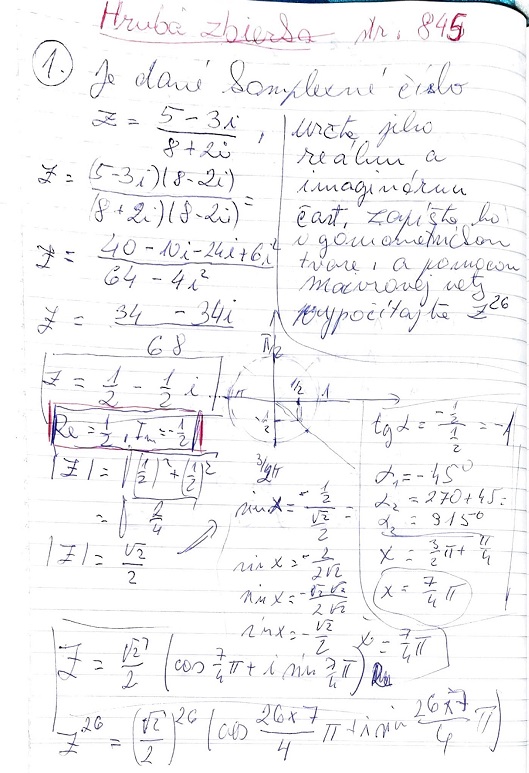 Hrubá zbierka str. 845
1. Je dané komplexné číslo
Z = (5-3i)/(8+2i), určte jeho
reálnu a
imaginárnu
časť, zapíšte ho
v goniometrickom
tvare, a pomocou
Moivrovej vety
vypočítajte Z^26
Z = (5-3i)(8-2i)/(8+2i)(8-2i) =
Z = (40-10i-24i+6i²)/(64-4i²)
Z = (34-34i)/68
Z = 1/2 - 1/2 i
Re = 1/2, Im = -1/2
|Z| = √((1/2)²+(1/2)²)
= √(2/4)
|Z| = √2/2
π/2
π
1/2
1
-1/2
3/2π
sin x = -(1/2)/(√2/2) =
sin x = -2/(2√2)
sin x = -(√2√2)/(2√2)
sin x = -√2/2
x = 7/4 π
tg α = (-1/2)/(1/2) = -1
α₁ = -45°
α₂ = 270+45=
α₂ = 315°
x = 3/2 π + π/4
x = 7/4 π
Z = √2/2 (cos 7/4 π + i sin 7/4 π)
Z^26 = (√2/2)^26 (cos (26×7)/4 π + i sin (26×7)/4 π)